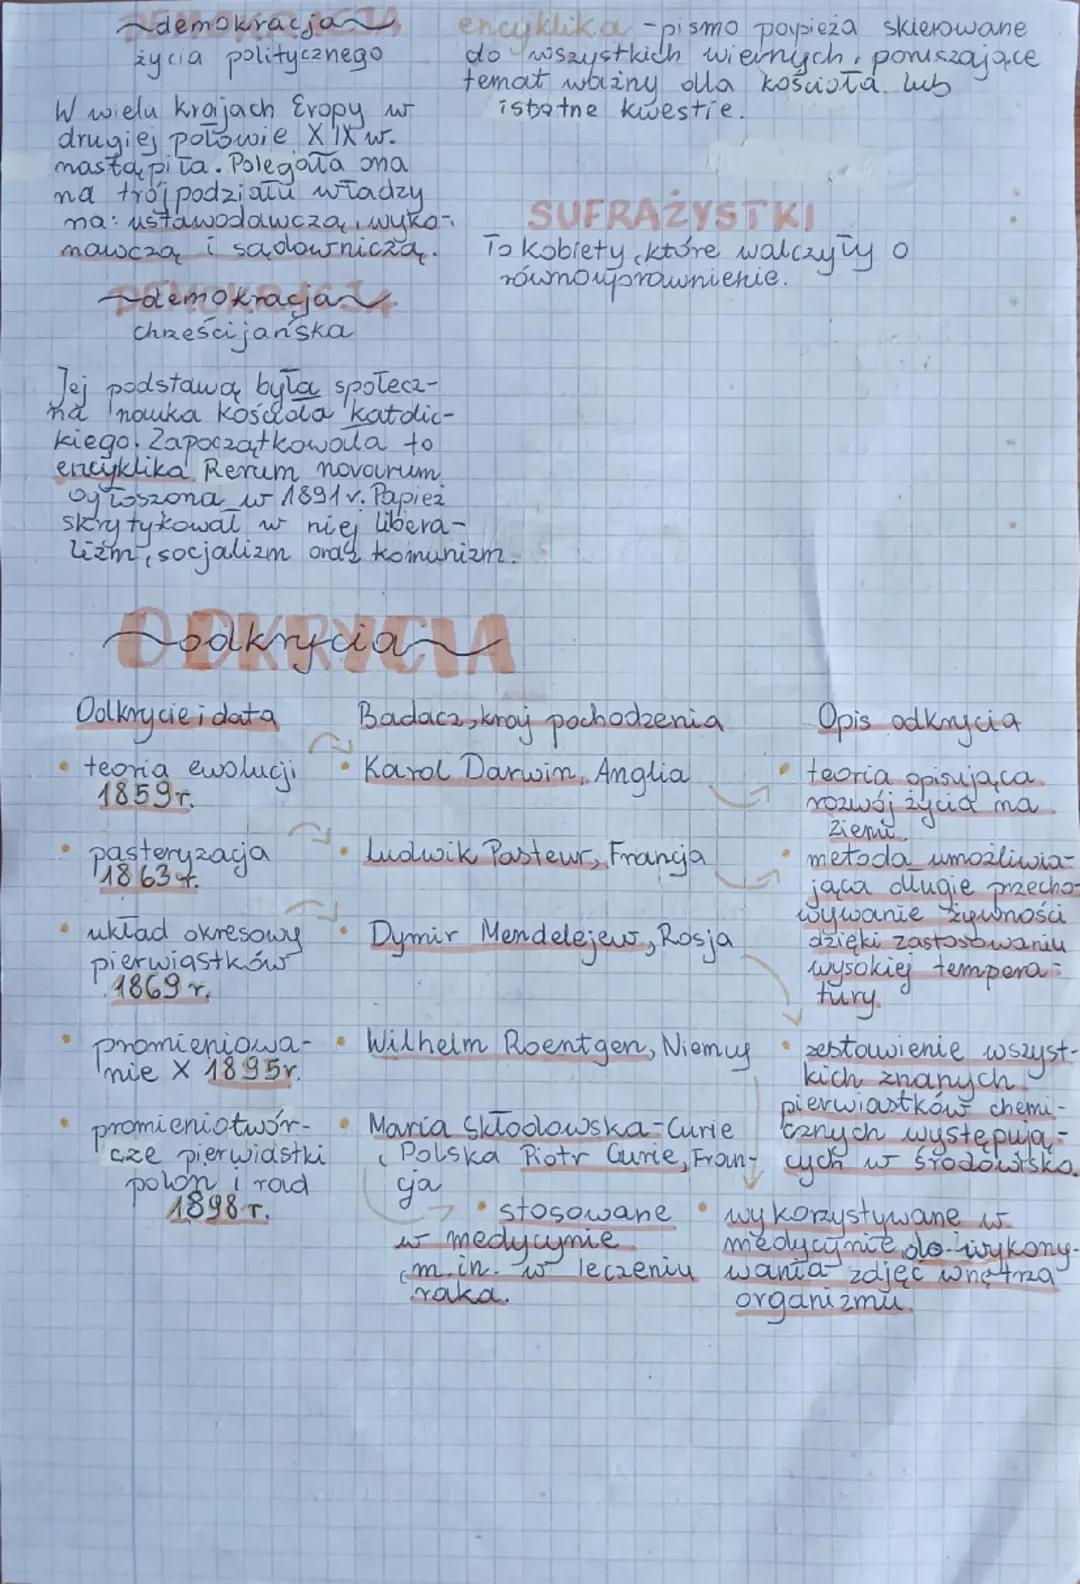 demokracja
życia politycznego
W wielu krajach Eropy w
drugiej połowie XIX w.
nastąpiła. Polegała ona
na trójpodziału władzy
na: ustawodawczą, wyko-
nawczą i sądowniczą.
demokracja
chrześcijańska
Jej podstawą była społecz-
na nauka kościoła katolic-
kiego. Zapoczątkowała to
encyklika Rerum novarum
ogłoszona w 1891 r. Papież
skrytykował w niej libera-
lizm, socjalizm oraz komunizm.
encyklika - pismo papieża skierowane
do wszystkich wiernych, poruszające
temat ważny dla kościoła lub
istotne kwestie.
SUFRAŻYSTKI
To kobiety, które walczyły o
równouprawnienie.
odkrycia
Odkrycie i data
teoria ewolucji
1859r.
pasteryzacja
1863 r.
układ okresowy
pierwiastków
1869 r.
promieniowa-
nie X 1895r.
promieniotwór-
cze pierwiastki
polon i rad
1898 r.
Badacz, kraj pochodzenia
Karol Darwin, Anglia
Ludwik Pasteur, Francja
Dymir Mendelejew, Rosja
Wilhelm Roentgen, Niemcy
Maria Skłodowska-Curie
, Polska Piotr Curie, Fran-
cja
stosowane
w medycynie
m.in. w leczeniu
raka.
Opis odkrycia
teoria opisująca
rozwój życia na
Ziemi.
metoda umożliwia-
jąca długie przecho-
wywanie żywności
dzięki zastosowaniu
wysokiej tempera-
tury.
zestawienie wszyst-
kich znanych
pierwiastków chemi-
cznych występują-
cych w środowisko.
wykorzystywane w
medycynie do wykony-
wania zdjęć wnętrza
organizmu.